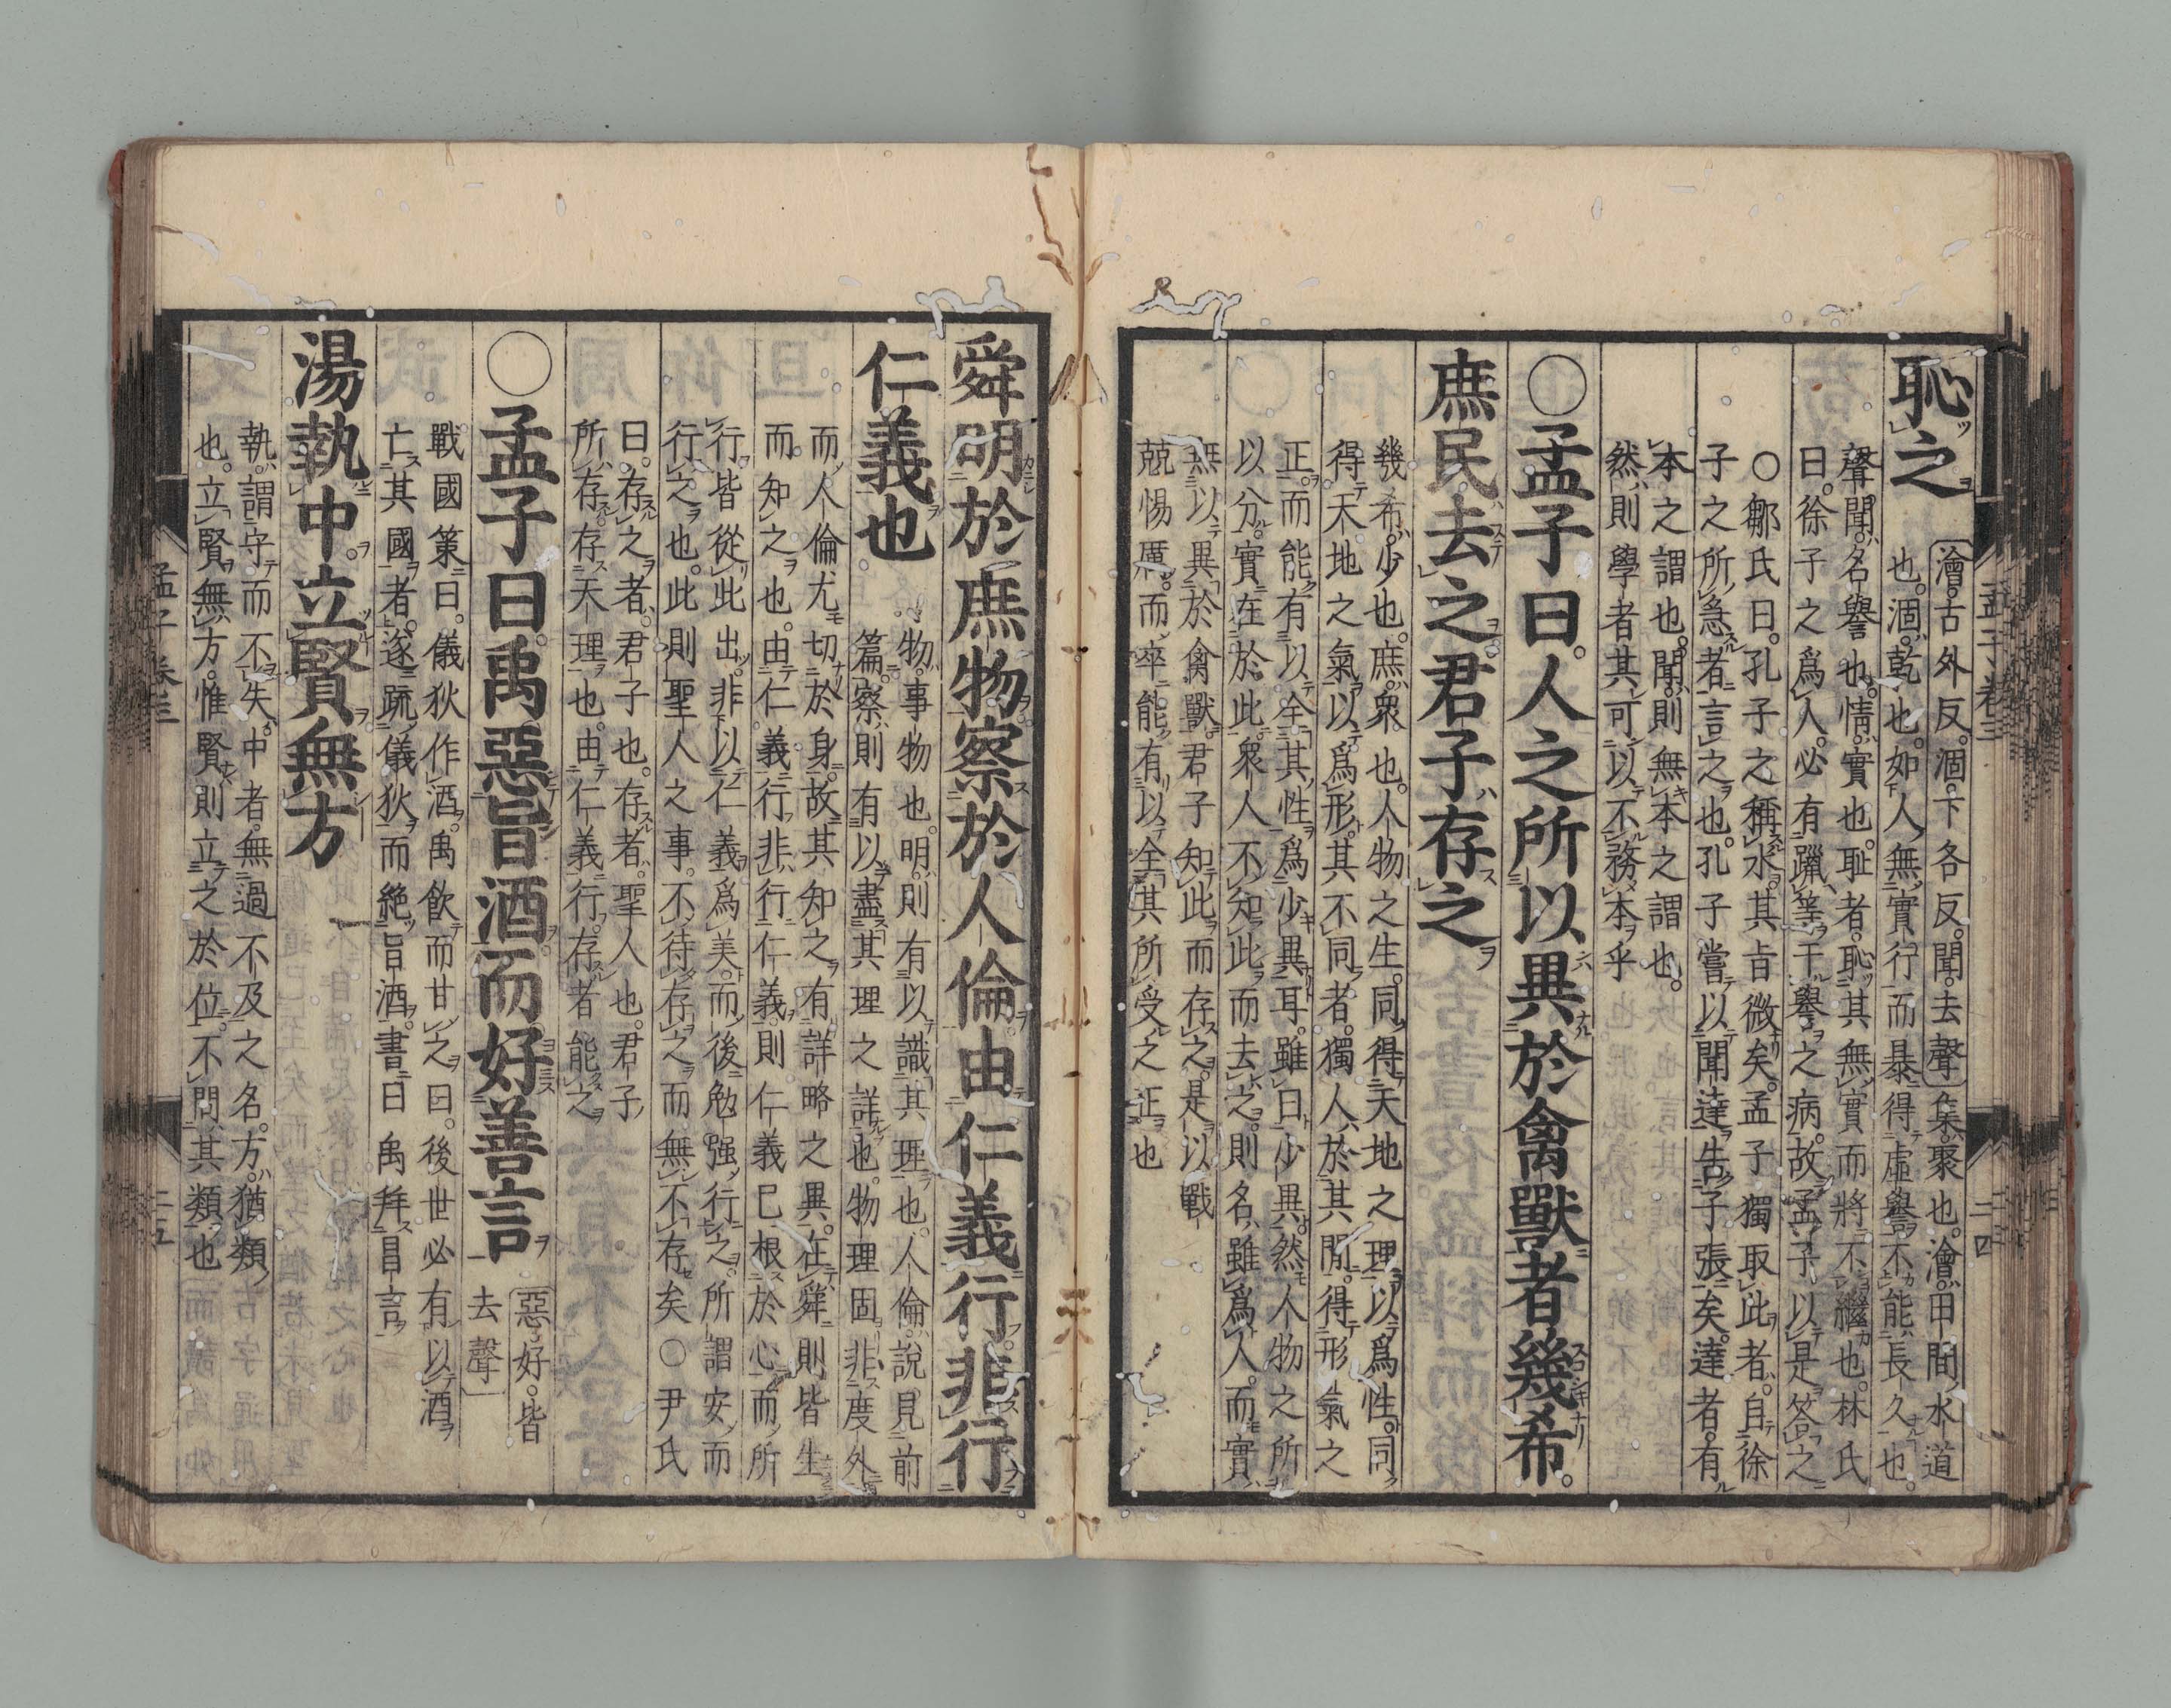 恥之
澮。古外反。涸。下各反。聞。去聲。集。聚也。澮。田間水道
也。涸。乾也。如人無實行而暴得虛譽。不能長久也。
聲聞。名譽也。情。實也。恥者。恥其無實而將不繼也。林氏
曰。徐子之爲人。必有躐等干譽之病。故孟子以是答之
○鄒氏曰。孔子之稱水。其旨微矣。孟子獨取此者。自徐
子之所急者言之也。孔子嘗以聞達告子張矣。達者。有
本之謂也。聞。則無本之謂也。
然則學者其可以不務本乎
○孟子曰。人之所以異於禽獸者幾希。
庶民去之。君子存之
幾希。少也。庶。衆也。人物之生。同得天地之理以爲性。同
得天地之氣以爲形。其不同者。獨人於其間。得形氣之
正。而能有以全其性。爲少異耳。雖曰少異。然人物之所
以分。實在於此。衆人不知此而去之。則名雖爲人。而實
無以異於禽獸。君子知此而存之。是以戰
兢惕厲。而卒能有以全其所受之正也
孟子 卷三 二四
舜明於庶物察於人倫由仁義行非行
仁義也
物。事物也。明。則有以識其理也。人倫。說見前
篇。察。則有以盡其理之詳也。物理固非度外
而人倫尤切於身。故其知之有詳略之異。在舜則皆生
而知之也。由仁義行。非行仁義。則仁義已根於心。而所
行皆從此出。非以仁義爲美。而後勉强行之。所謂安而
行之也。此則聖人之事。不待存之。而無不存矣○尹氏
曰。存之者。君子也。存者。聖人也。君子
所存。存天理也。由仁義行。存者能之
○孟子曰。禹惡旨酒而好善言
惡好。皆
去聲
戰國策曰。儀狄作酒。禹飲而甘之。曰。後世必有以酒
亡其國者。遂疏儀狄而絕旨酒。書曰禹拜昌言
湯執中。立賢無方
執。謂守而不失。中者。無過不及之名。方。猶類
也。立賢無方。惟賢則立之於位。不問其類也
孟子 卷三 二五